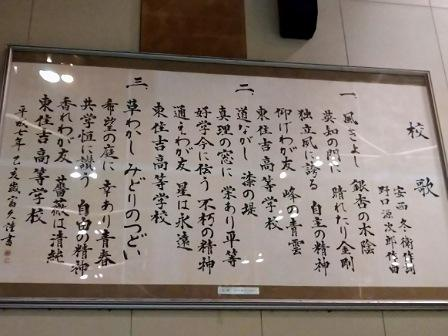 校歌
安西冬衛作詞
野口源次郎作曲
一 風さよし 銀杏の木陰
英知の門に 晴れたり金剛
独立夙に誇る 自主の精神
仰げわが友 峰の青雲
東住吉高等学校
二 道ながし 漆の堤
真理の窓に 栄あり平等
好学今に伝う 不朽の精神
通えわが友 星は永遠
東住吉高等学校
三 草わかし みどりのつどい
希望の庭に 幸あり青春
共学恒に讃う 自由の精神
香れわが友 薔薇は清純
東住吉高等学校
平成七年 乙亥歳
書